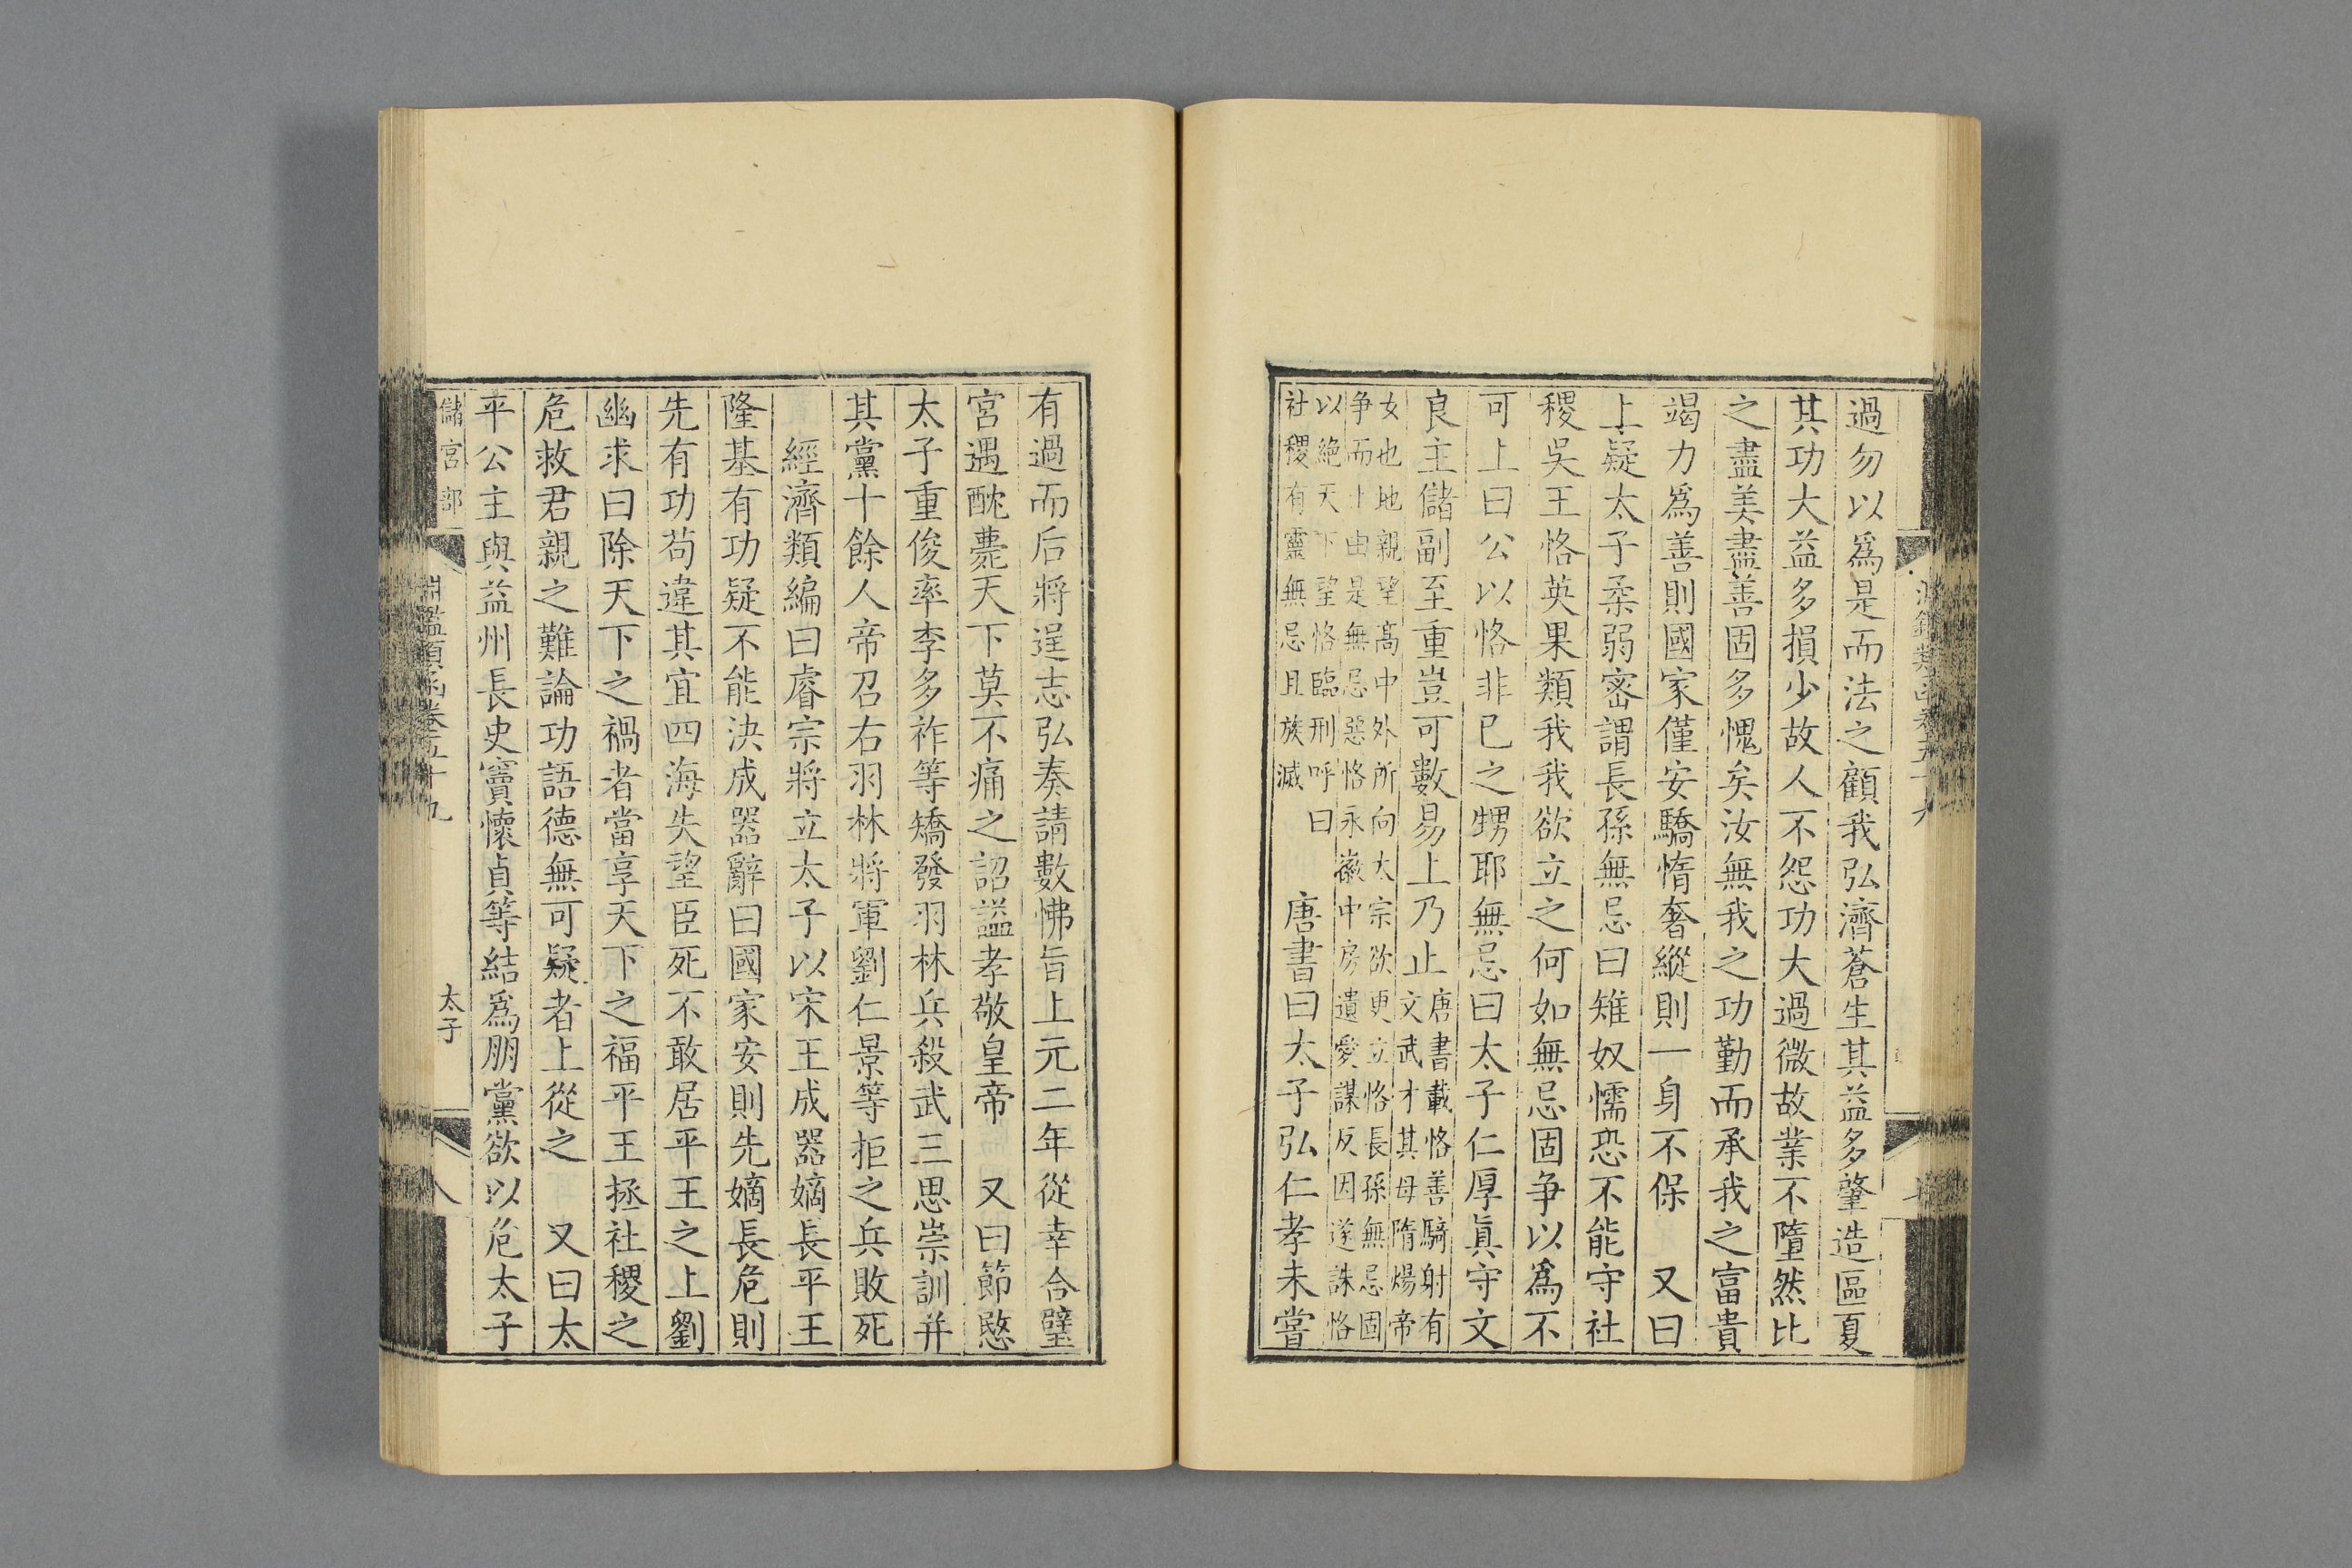 過勿以爲是而法之顧我弘濟蒼生其益多肇造區夏
其功大益多損少故人不怨功大過微故業不墮然比
之盡美盡善固多愧矣汝無我之功勤而承我之富貴
竭力爲善則國家僅安驕惰奢縱則一身不保 又曰
上疑太子柔弱密謂長孫無忌曰雉奴懦恐不能守社
稷吳王恪英果類我我欲立之何如無忌固争以爲不
可上曰公以恪非已之甥耶無忌曰太子仁厚眞守文
良主儲副至重豈可數易上乃止
唐書載恪善騎射有
文武才其母隋煬帝
女也地親望高中外所向太宗欲更立恪長孫無忌固
争而止由是無忌惡恪永徽中房遺愛謀反因遂誅恪
以絶天下望恪臨刑呼曰
社稷有靈無忌且族滅
唐書曰太子弘仁孝未嘗
有過而后將逞志弘奏請數怫旨上元二年從幸合璧
宮遇酖薨天下莫不痛之詔謚孝敬皇帝 又曰節愍
太子重俊率李多祚等矯發羽林兵殺武三思崇訓并
其黨十餘人帝召右羽林將軍劉仁景等拒之兵敗死
經濟類編曰睿宗將立太子以宋王成器嫡長平王
隆基有功疑不能決成器辭曰國家安則先嫡長危則
先有功苟違其宜四海失望臣死不敢居平王之上劉
幽求曰除天下之禍者當享天下之福平王拯社稷之
危救君親之難論功語德無可疑者上從之 又曰太
平公主與益州長史竇懷貞等結爲朋黨欲以危太子
儲宮部
淵鑑類函卷五十九
太子
八